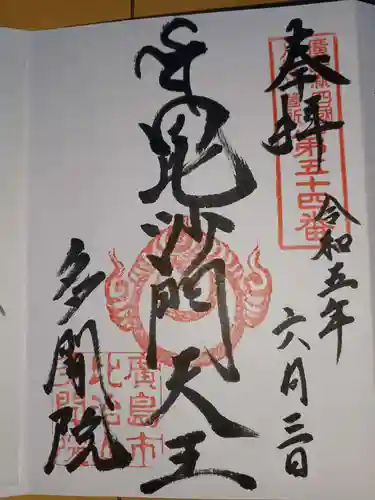 奉拝
第五十四番
令和五年
六月三日
毘沙門天王
多聞院
廣島市